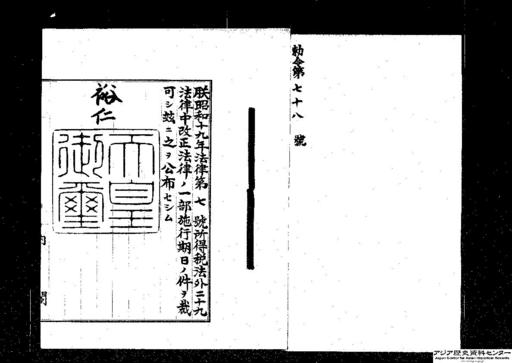 勅令第七十八號
朕昭和十九年法律第七號所得税法外二十九
法律中改正法律ノ一部施行期日ノ件ヲ裁
可シ玆ニ之ヲ公布セシム
裕仁
天皇御璽
内閣
アジア歴史資料センター
Japan Center for Asian Historical Records